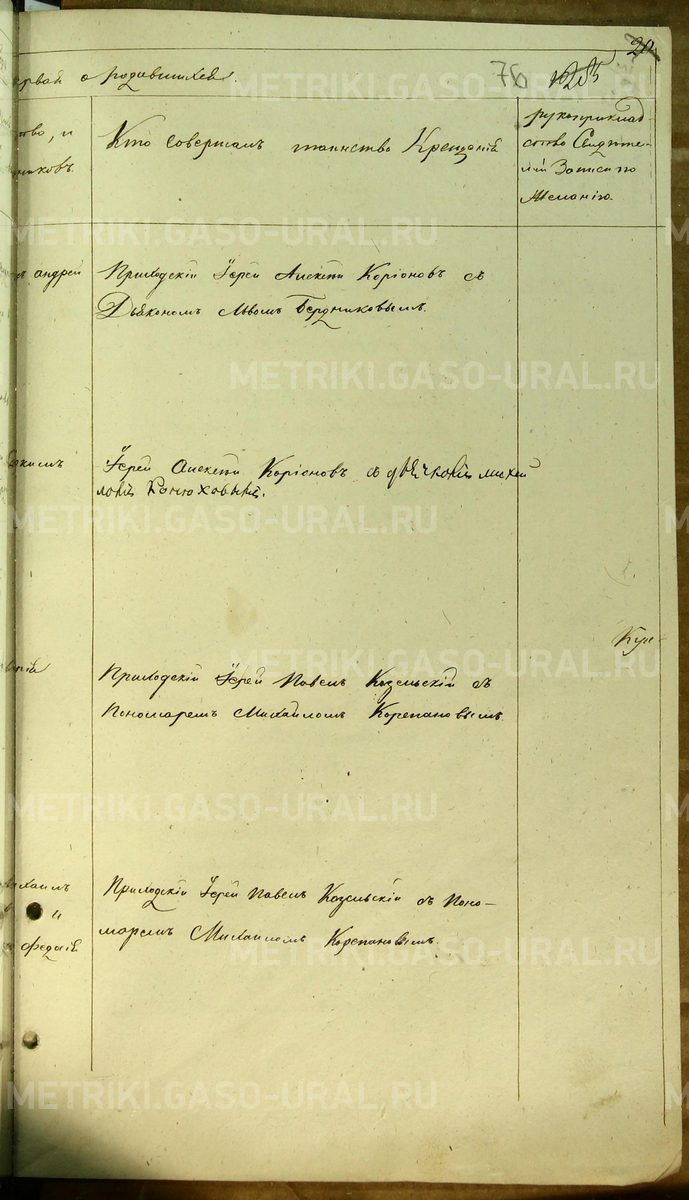 20
рвай о родившихся.
76 1025
тво, и
никовъ.
Кто совершалъ таинство Крещенія
рукоприклад-
ство Свидѣте-
лей Записи по
Желанію.
METRIKI.GASO-URAL.RU
андрей
Приходскій Іерей Алексѣй Коріоновъ съ
Діякономъ Львомъ Бердниковымъ.
METRIKI.GASO-URAL.RU
Іерей Алексѣй Коріоновъ съ дьячкомъ михай
ломъ Конюховымъ.
METRIKI.GASO-URAL.RU
Кун-
METRIKI.GASO-URAL.RU
Приходскій Іерей Павелъ Козельскій съ
Пономаремъ Михаиломъ Корепановымъ.
METRIKI.GASO-URAL.RU
ихаилъ
и
Приходскій Іерей Павелъ Козельскій съ Поно-
маремъ Михаиломъ Корепановымъ.
METRIKI.GASO-URAL.RU
METRIKI.GASO-URAL.RU